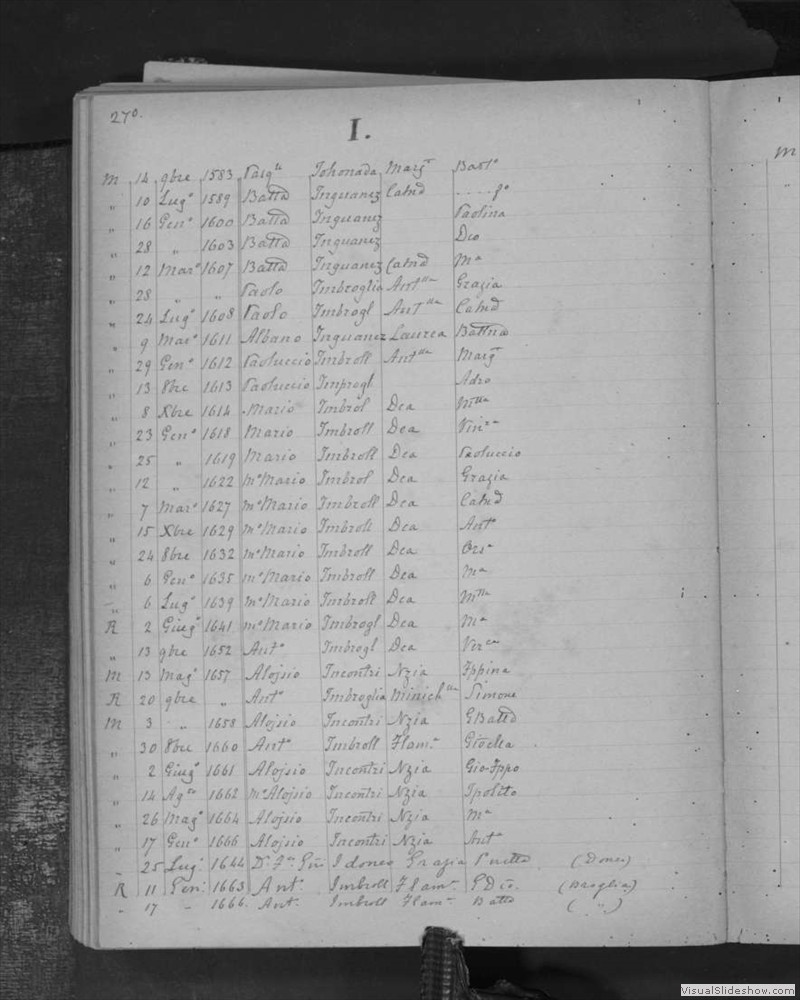 270.
I.
M 14 9bre 1583 Pasq^le Johonada Marg^t Bart^o
" 10 Lug^o 1589 Batta Inguanez Catnd ..... f^o
" 16 Gen^o 1600 Batta Inguanez Paolina
" 28 " 1603 Batta Inguanez Deo
" 12 Mar^o 1607 Batta Inguanez Catnd M^a
" 28 " " Paolo Imbroglia Ant^lla Grazia
" 24 Lug^o 1608 Paolo Imbrogl Ant^lla Catnd
" 9 Mar^o 1611 Albano Inguanez Laurea Battna
" 29 Gen^o 1612 Paoluccio Imbroll Ant^lla Marg^t
" 13 8bre 1613 Paoluccio Improgl Adro
" 8 Xbre 1614 Mario Imbrol Dea
" 23 Gen^o 1618 Mario Imbroll Dea
" 25 " 1619 Mario Imbroll Dea Paoluccio
" 12 " 1622 m^o Mario Imbrol Dea Grazia
" 7 Mar^o 1627 m^o Mario Imbroll Dea Catnd
" 15 Xbre 1629 m^o Mario Imbroll Dea Ant^o
" 24 8bre 1632 m^o Mario Imbroll Dea Ors^a
" 6 Gen^o 1635 m^o Mario Imbroll Dea M^a
" 6 Lug^o 1639 m^o Mario Imbroll Dea
R 2 Giug^o 1641 m^o Mario Imbrogl Dea M^a
" 13 9bre 1652 Ant^o Imbrogl Dea
M 13 Mag^o 1657 Alojsio Incontri Nzia Ippina
R 20 9bre " Ant^o Imbroglia Minich^lla Simone
M 3 " 1658 Alojsio Incontri Nzia GBatta
" 30 8bre 1660 Ant^o Imbroll Flam^a
" 2 Giug^o 1661 Alojsio Incontri Nzia Gio Ippo
" 14 Ag^to 1662 m^o Alojsio Incontri Nzia Ipolito
" 26 Mag^o 1664 Alojsio Incontri Nzia M^a
" 17 Gen^o 1666 Alojsio Incontri Nzia Ant^a
" 25 Lug^o 1644 Idones Grazia (Dones)
R 11 Gen^o 1663 Ant^o Imbroll Flam^a (Broglia)
" 17 " 1666 Ant^o Imbroll Flam^a Batta ( " )
M
VisualSlideshow.com